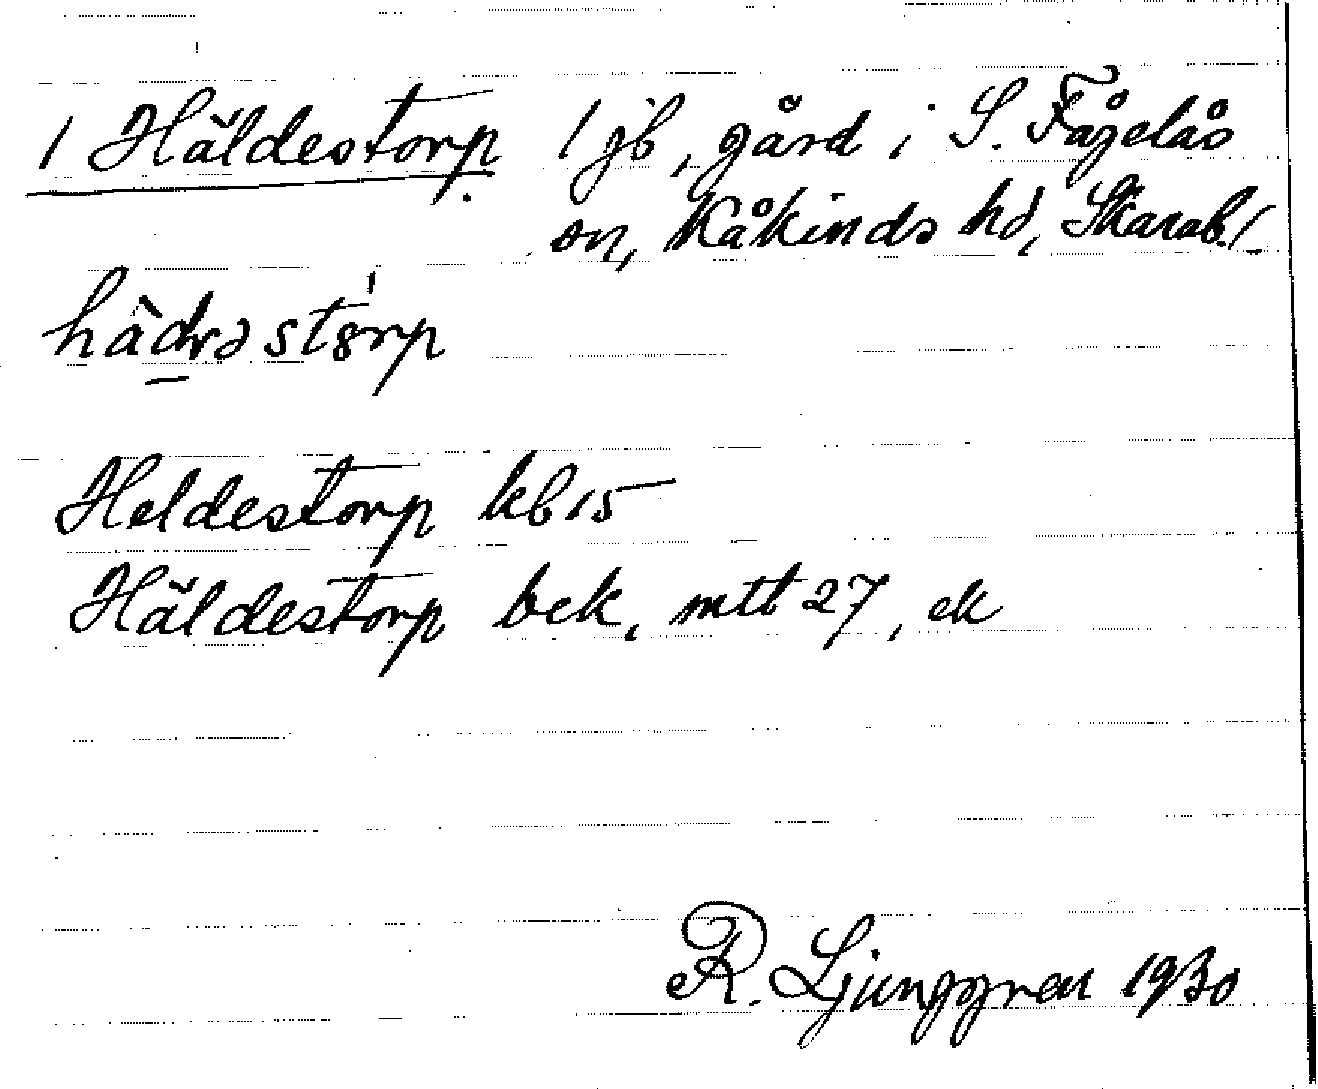 1 Häldestorp 1 jb, gård i S. Fågelås
sn, Kåkinds hd, Skarab. l.
Heldestorp kb 15
Häldestorp bek, mtt 27, ek
R. Ljunggren 1930